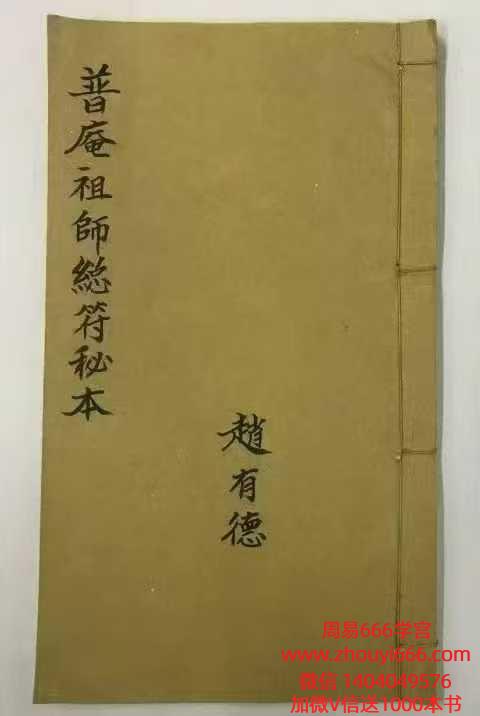 普庵祖師總符秘本
趙有德
周易666学宫
www.zhouyi666.com
微信 1404049576
加微V信送1000本书